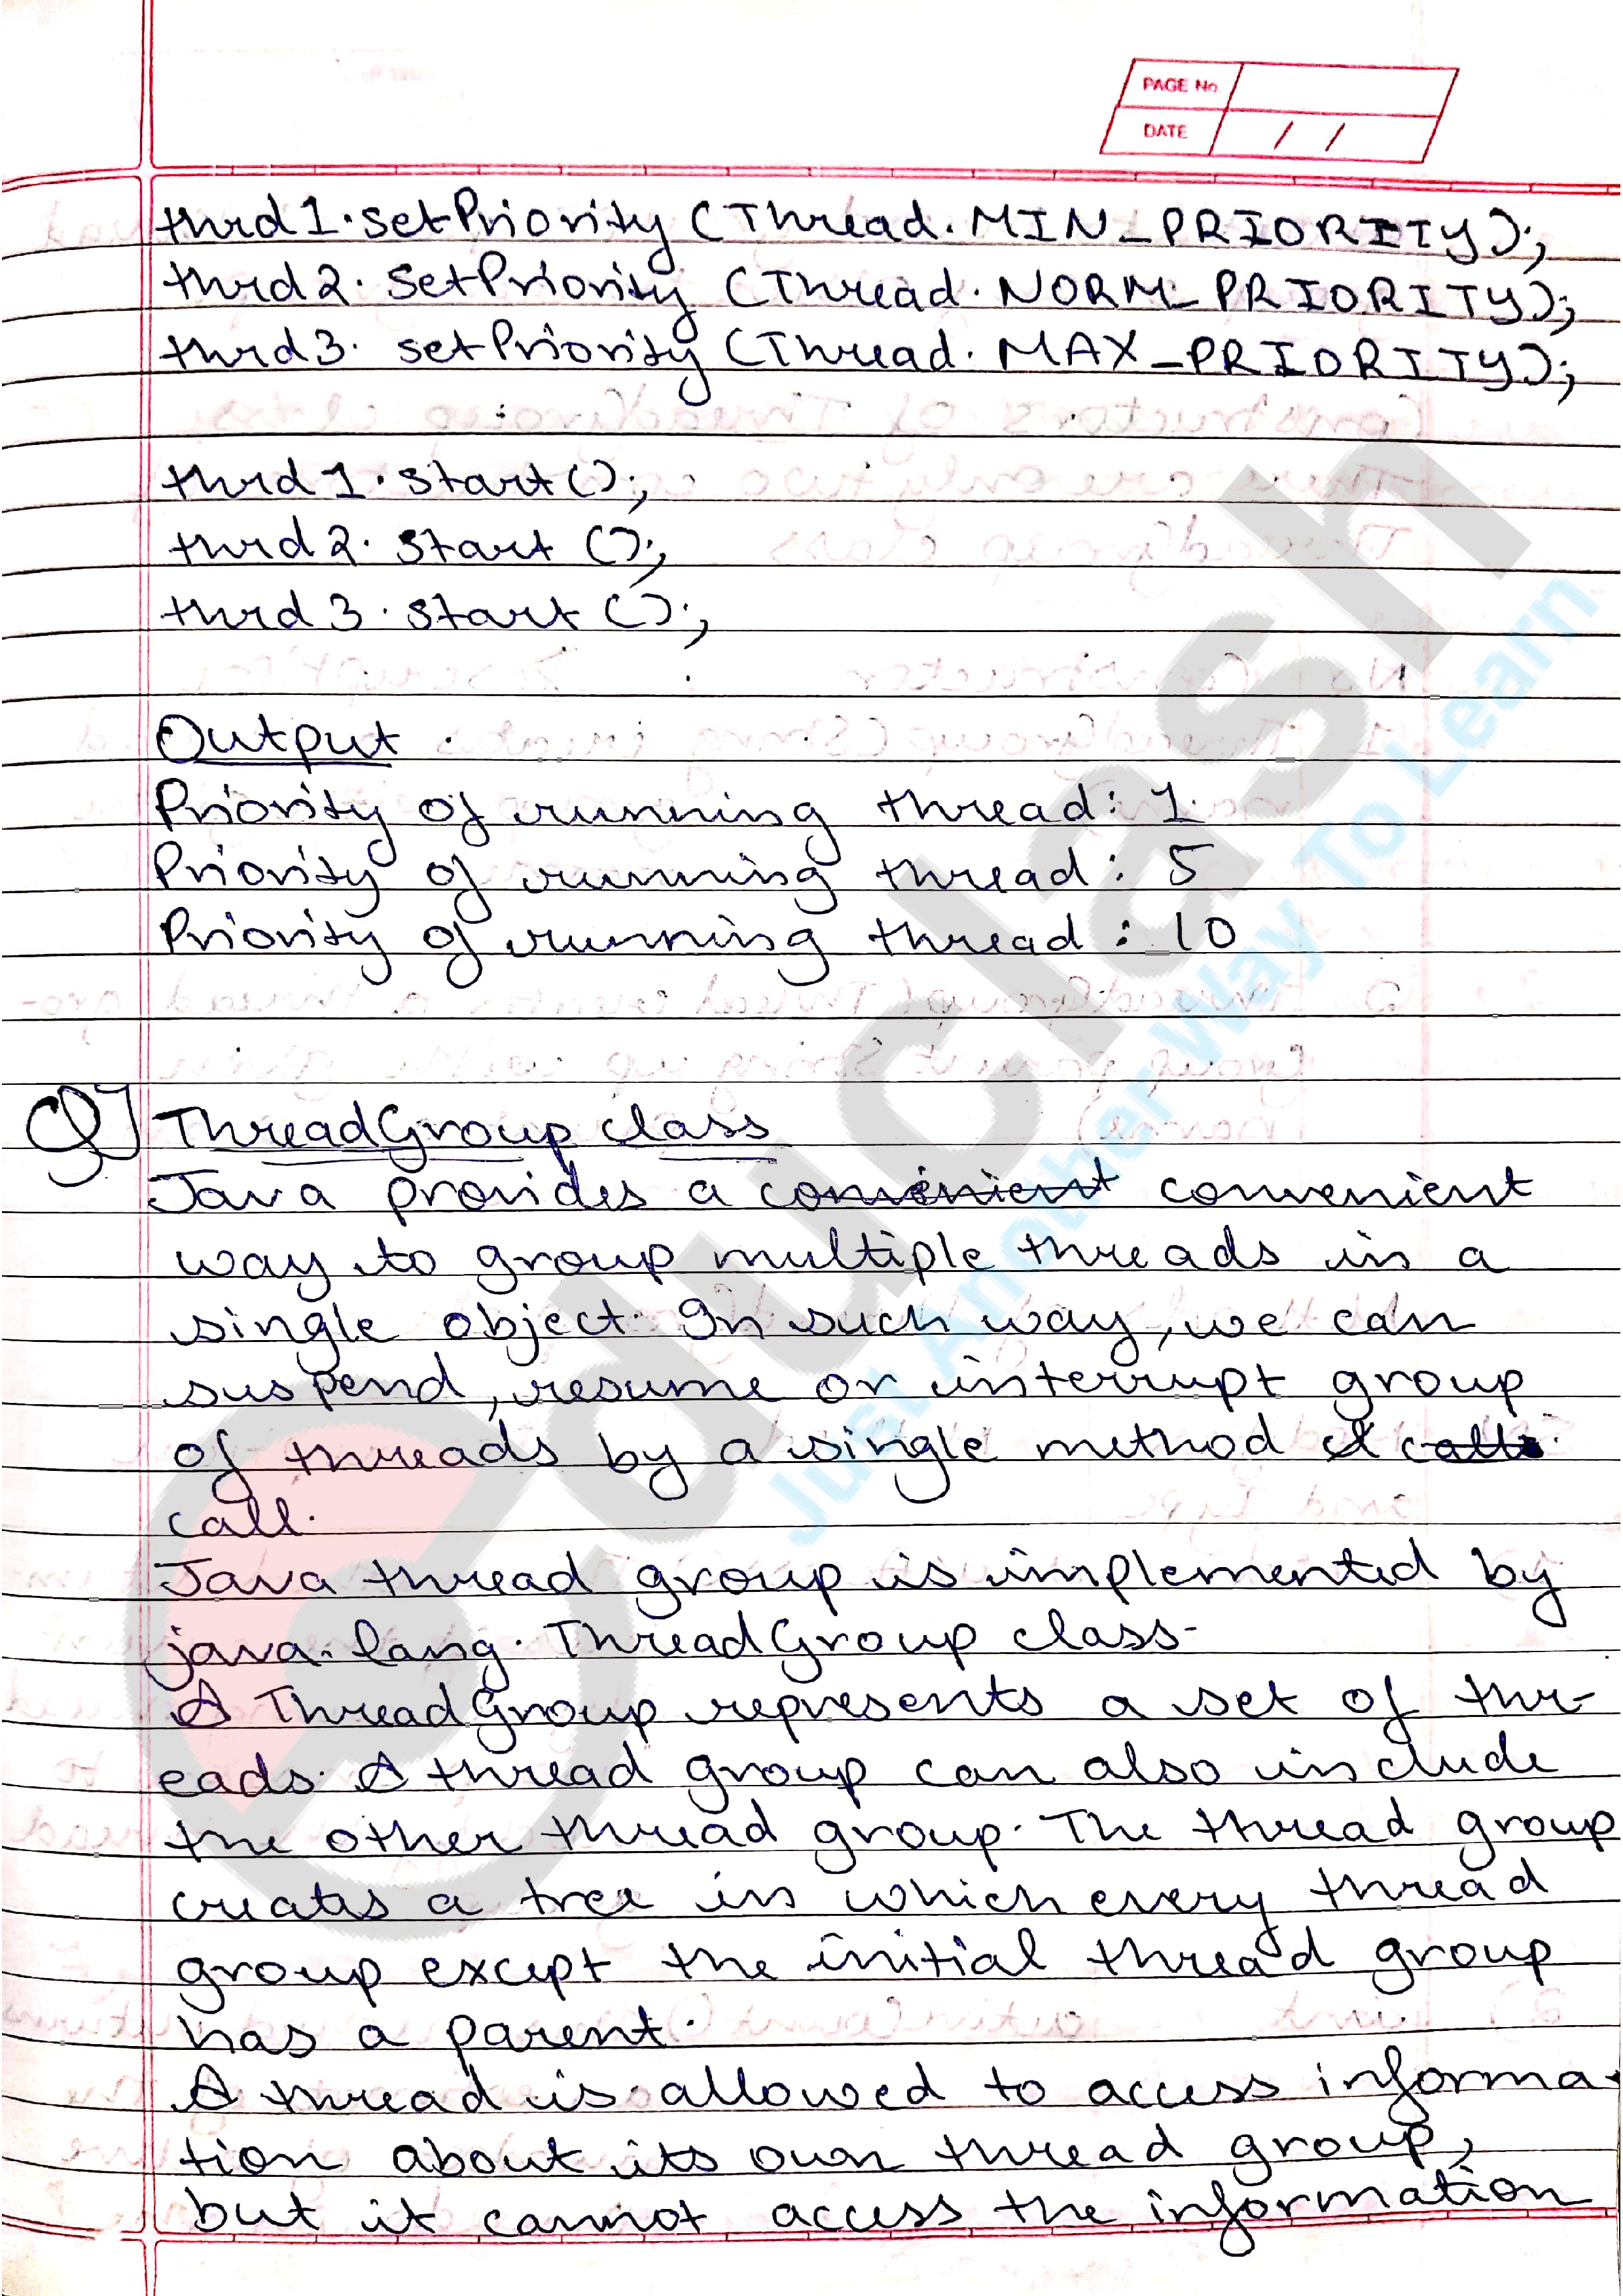 PAGE No
DATE / /
thrd1.setPriority (Thread.MIN_PRIORITY);
thrd2. setPriority (Thread.NORM_PRIORITY);
thrd3. setPriority (Thread.MAX_PRIORITY);
thrd1.start();
thrd2.start ();
thrd3.start ();
Output
Priority of running thread: 1
Priority of running thread: 5
Priority of running thread: 10
Q] ThreadGroup class
Java provides a convinient convenient
way to group multiple threads in a
single object. In such way, we can
suspend, resume or interrupt group
of threads by a single method calls
call.
Java thread group is implemented by
java.lang.ThreadGroup class.
A ThreadGroup represents a set of thr-
eads. A thread group can also include
the other thread group. The thread group
creates a tree in which every thread
group except the initial thread group
has a parent.
A thread is allowed to access informa-
tion about its own thread group,
but it cannot access the information
educlash
Just Another Way To Learn